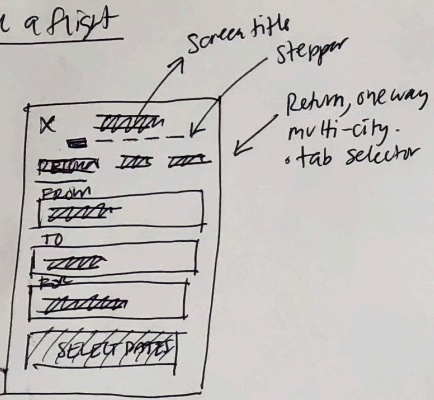 a flight
Screen title
Stepper
Return, one way
multi-city.
. tab selector
X
RETURN
FROM
TO
FOR
SELECT DATES